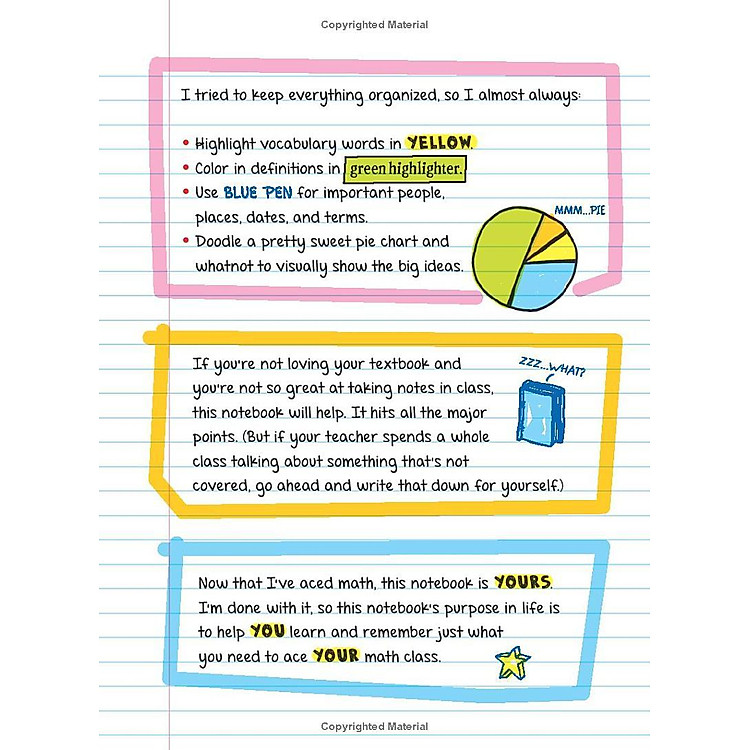 Copyrighted Material
I tried to keep everything organized, so I almost always:
• Highlight vocabulary words in YELLOW.
• Color in definitions in green highlighter.
• Use BLUE PEN for important people,
places, dates, and terms.
MMM...PIE
• Doodle a pretty sweet pie chart and
whatnot to visually show the big ideas.
If you're not loving your textbook and
you're not so great at taking notes in class,
this notebook will help. It hits all the major
points. (But if your teacher spends a whole
class talking about something that's not
covered, go ahead and write that down for yourself.)
ZZZ...WHAT?
Now that I've aced math, this notebook is YOURS.
I'm done with it, so this notebook's purpose in life is
to help YOU learn and remember just what
you need to ace YOUR math class.
Copyrighted Material